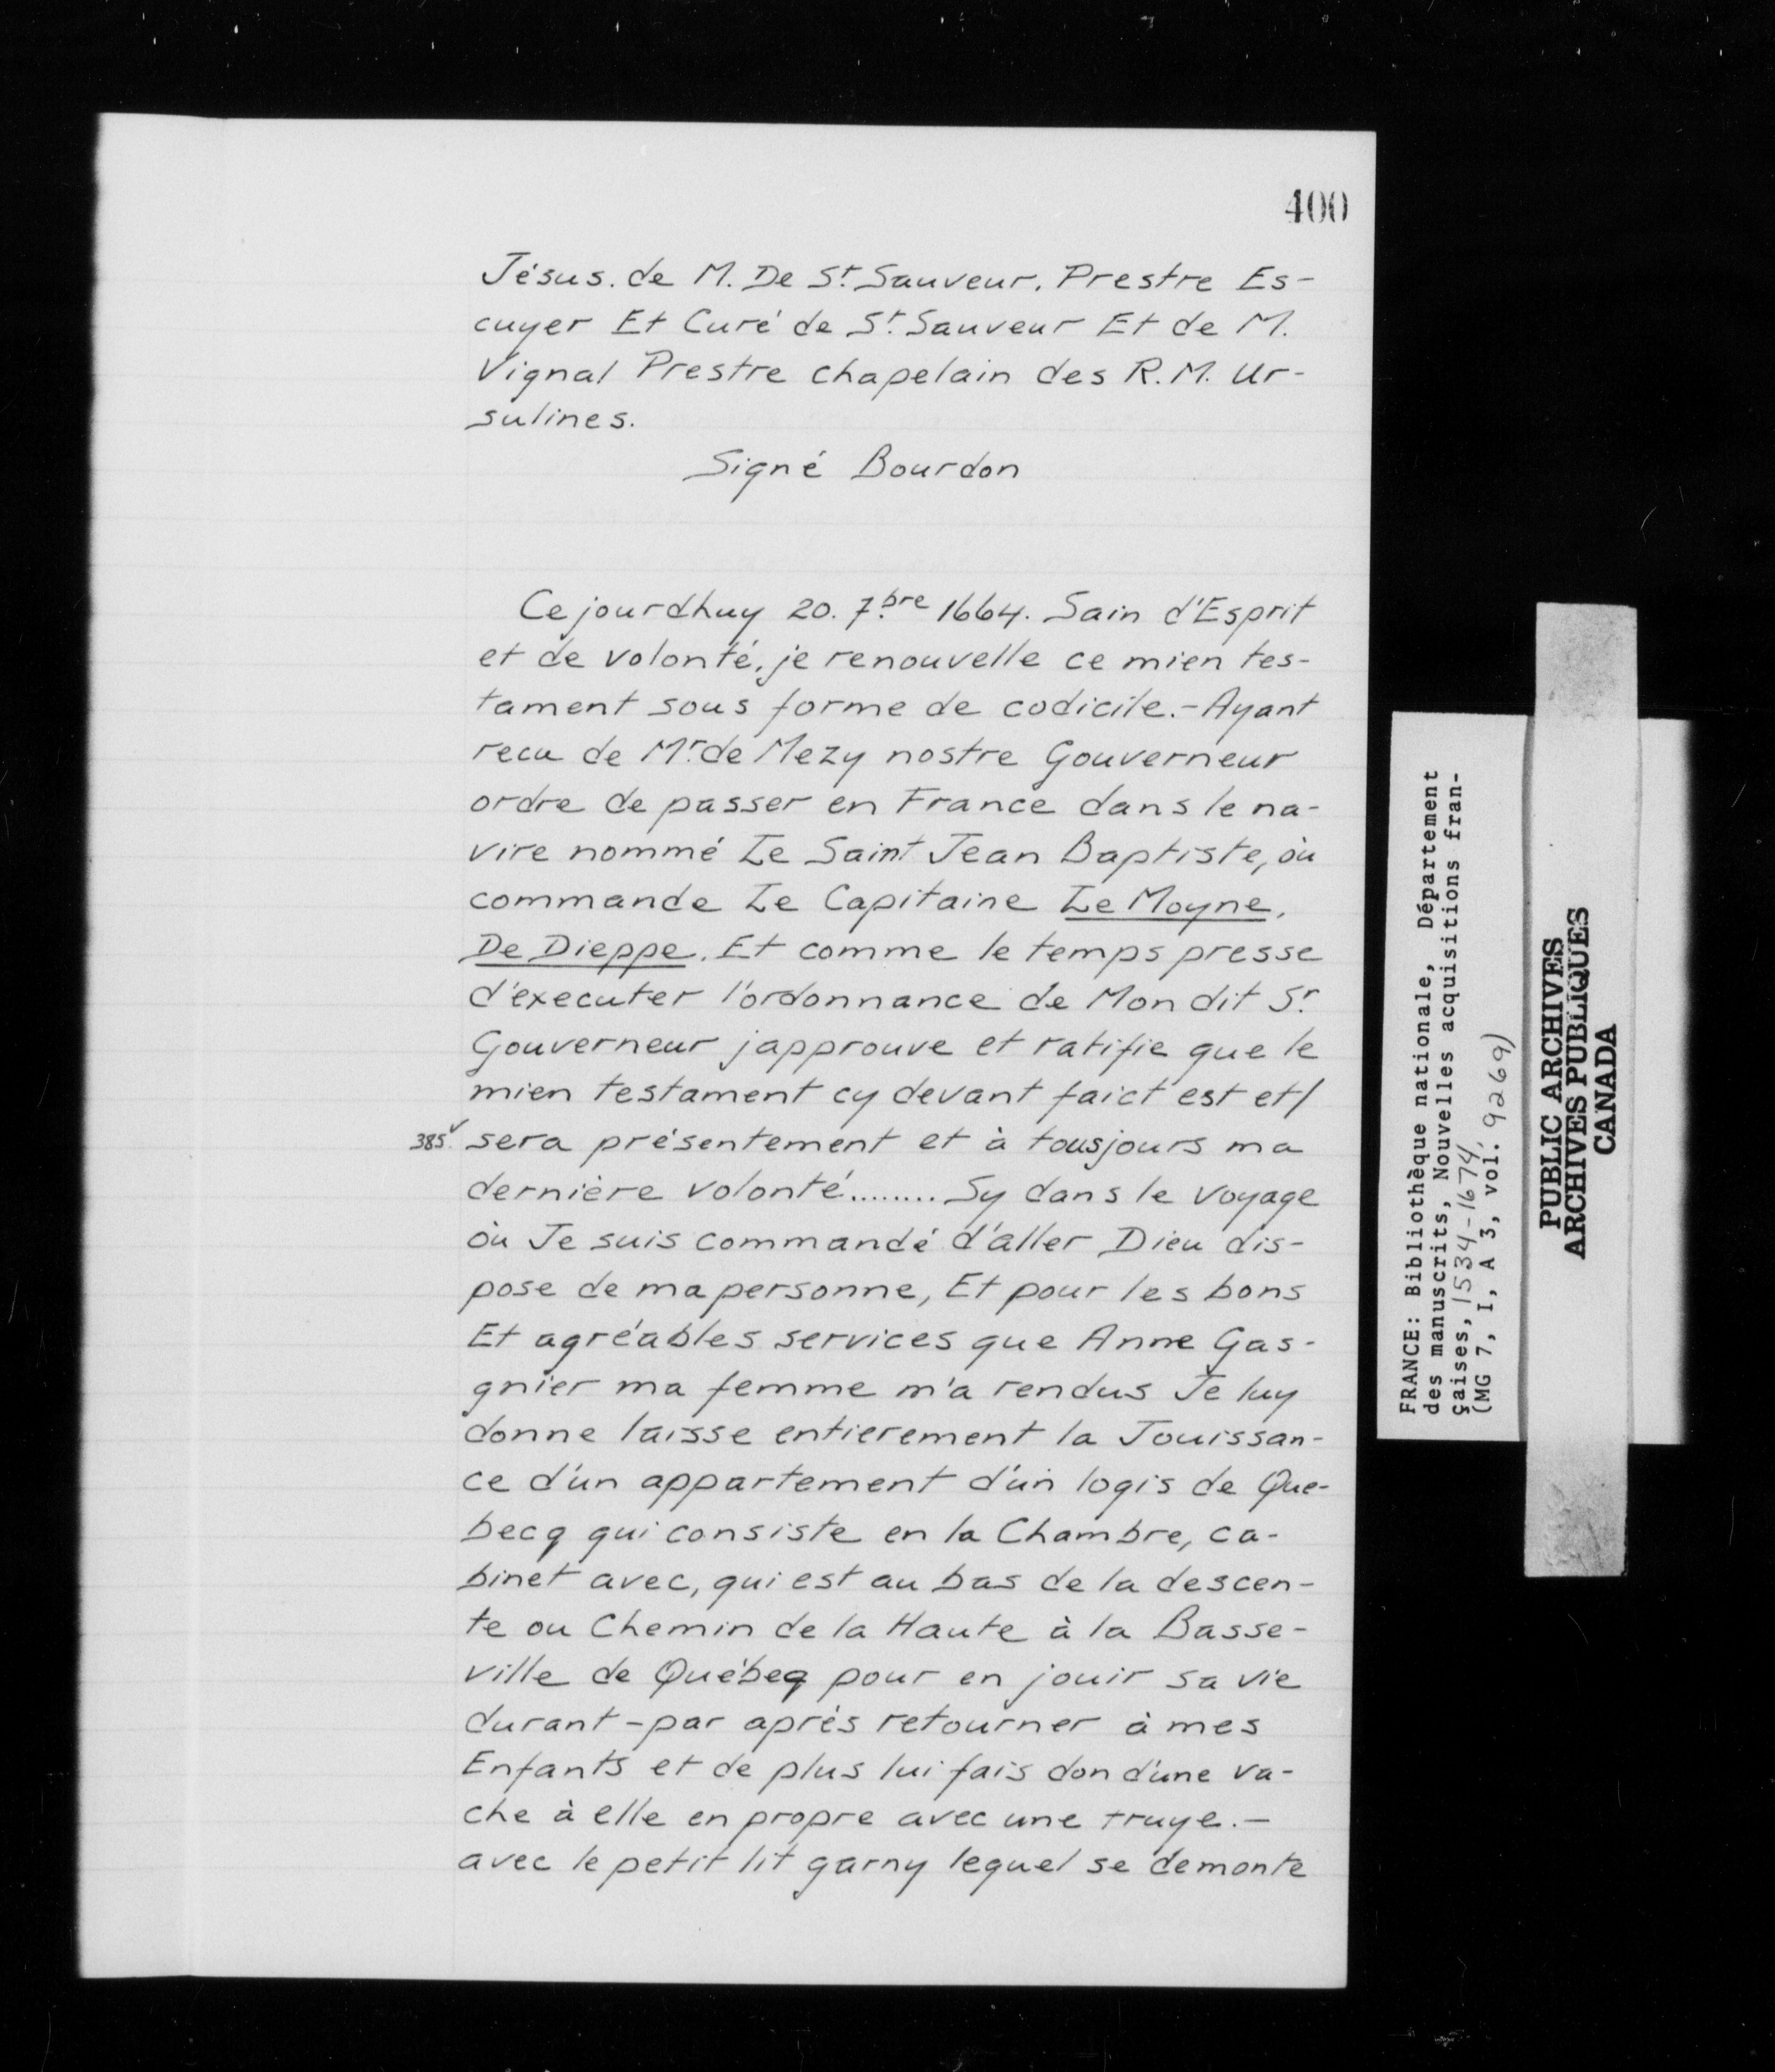 400
Jésus. de M. De St. Sauveur. Prestre Es-
cuyer Et Curé de St. Sauveur Et de M.
Vignal Prestre chapelain des R. M. Ur-
sulines.
Signé Bourdon
Ce jourdhuy 20. 7.bre 1664. Sain d'Esprit
et de volonté. je renouvelle ce mien tes-
tament sous forme de codicile. - Ayant
recu de Mr. de Mezy nostre Gouverneur
ordre de passer en France dans le na-
vire nommé Le Saint Jean Baptiste, où
commande Le Capitaine Le Moyne.
De Dieppe. Et comme le temps presse
d'executer l'ordonnance de Mon dit Sr.
Gouverneur japprouve et ratifie que le
mien testament cy devant faict est et/
385v. sera présentement et à tousjours ma
dernière volonté........ Sy dans le voyage
où Je suis commandé d'aller Dieu dis-
pose de ma personne, Et pour les bons
Et agréables services que Anne Gas-
gnier ma femme m'a rendus Je luy
donne laisse entierement la Jouissan-
ce d'un appartement d'un logis de Que-
becq qui consiste en la Chambre, ca-
binet avec, qui est au bas de la descen-
te ou Chemin de la Haute à la Basse-
ville de Québeq pour en jouir sa vie
durant - par après retourner à mes
Enfants et de plus lui fais don d'une va-
che à elle en propre avec une truye. -
avec le petit lit garny lequel se demonte
FRANCE: Bibliothèque nationale, Département
des manuscrits, Nouvelles acquisitions fran-
çaises, 1534-1674
(MG 7, I, A 3, vol. 9269)
PUBLIC ARCHIVES
ARCHIVES PUBLIQUES
CANADA